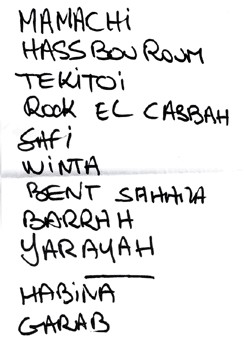 MAMACHi
HASS BOU ROUM
TEKITOi
ROCK EL CASBAH
SAFi
WiNTA
BENT SAHHRA
BARRAH
YARAYAH
HABiNA
GARAB